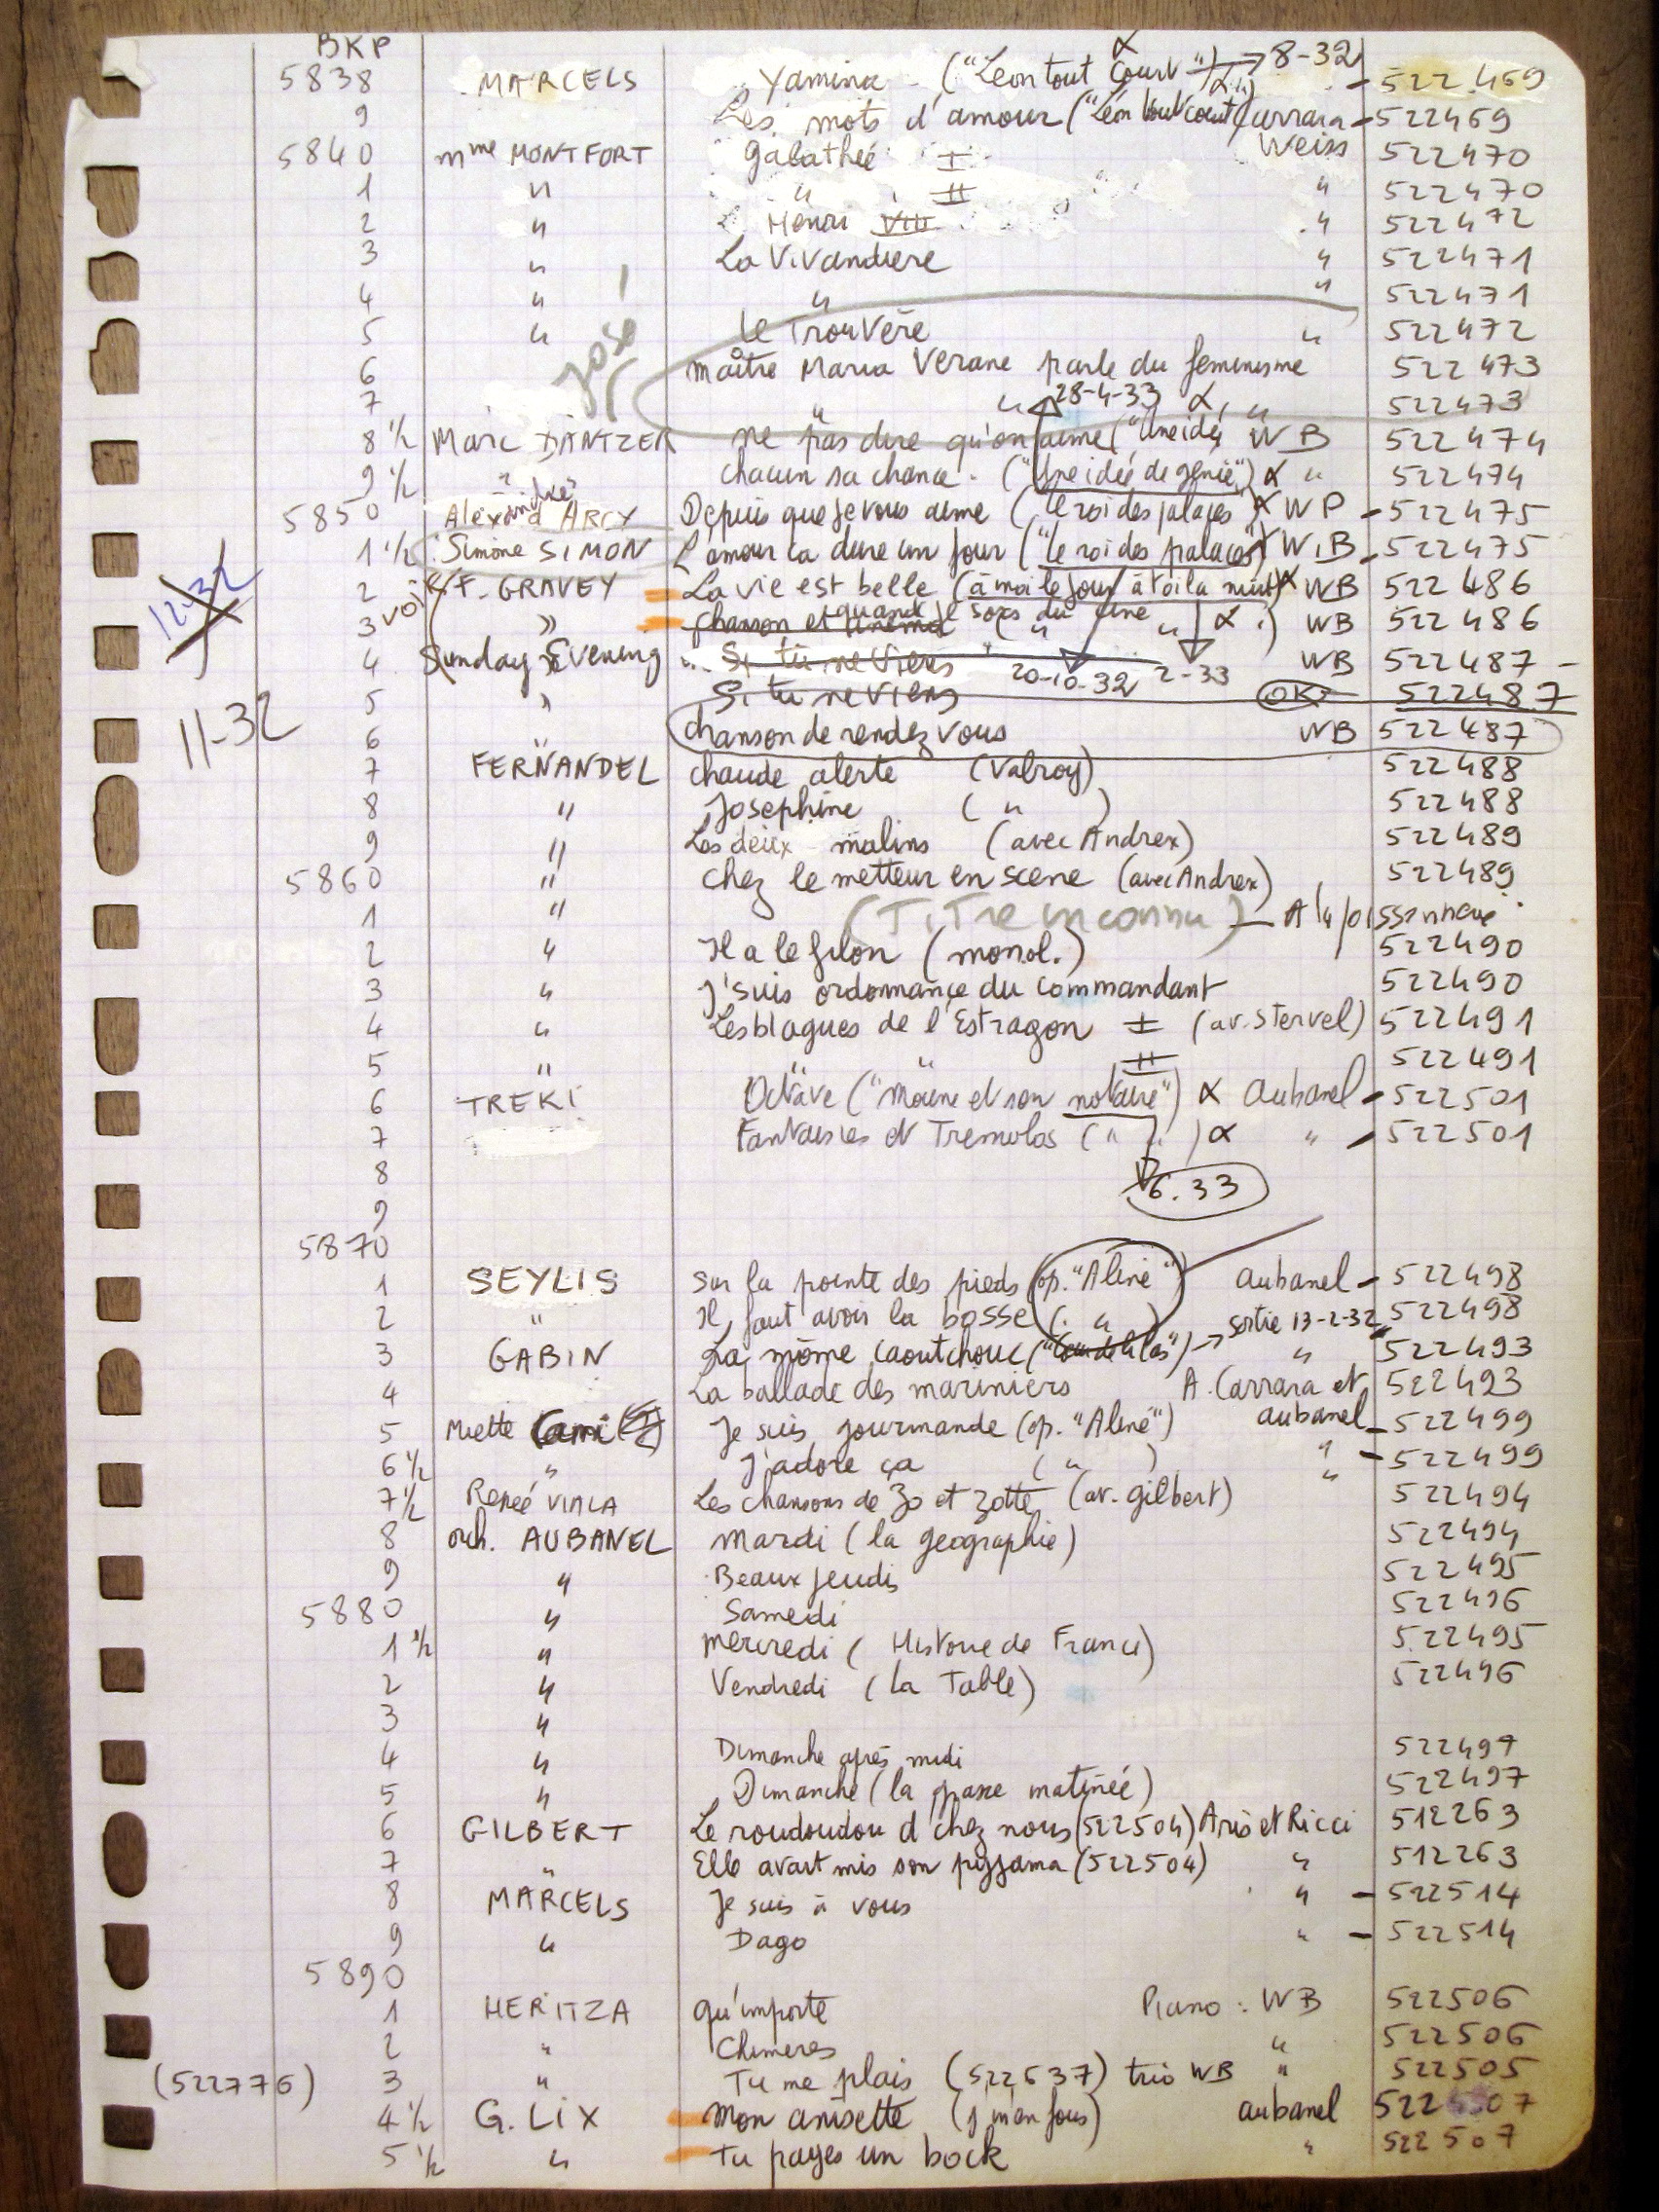 BKP
5838 MARCELS Yamina ("Léon tout court") α → 8-32 - 522.469
9 Les mots d'amour ("Léon tout court") Carrara - 522469
5840 Mme MONTFORT Galathée I Weiss 522470
1 " " II " 522470
2 " Henri VIII " 522472
3 " La Vivandière " 522471
4 " " " 522471
José!
5 " Le Trouvère " 522472
6 maître Maria Verane parle du feminisme 522473
7 " " 28-4-33 α " 522473
8 1/2 Marc DANTZER ne pas dire qu'on aime ("Une idée WB 522474
9 1/2 " Chacun sa chance. ("Une idée de génie") α " 522474
5850 Alexandre d'ARCY Depuis que je vous aime (le roi des palaces") α WP - 522475
1 1/2 Simone SIMON L'amour ca dure un jour ("le roi des palaces") α W.B - 522475
12-32
2 voir F. GRAVEY La vie est belle (à moi le jour à toi la nuit) α WB 522486
3 " chanson et cinéma quand je sors du cine ( " " α ) WB 522486
4 Sunday Evening Si tu ne viens 20-10-32 2-33 WB 522487 -
11-32
5 " Si tu ne viens OK 522487
6 " chanson de rendez vous WB 522487
7 FERNANDEL chaude alerte (Valroy) 522488
8 " Josephine ( " ) 522488
9 " Les deux malins (avec Andrex) 522489
5860 " chez le metteur en scene (avec Andrex) 522489
1 " (Titre inconnu) - A la poissonnerie
2 " Il a le filon (monol.) 522490
3 " J'suis ordonnance du commandant 522490
4 " Les blagues de l'Estragon I (av. Stervel) 522491
5 " " " II 522491
6 TREKI Octave ("Moune et son notaire") α Aubanel - 522501
7 Fantaisies et Tremolos ( " " ) α " - 522501
8 6.33
9
5870
1 SEYLIS Sur la pointe des pieds (op. "Aline") Aubanel - 522498
2 " Il faut avoir la bosse ( " ) sortie 13-2-32 522498
3 GABIN La môme caoutchouc ("Coeur de lilas") → " 522493
4 La ballade des mariniers A. Carrara et 522493
5 Miette Cami Je suis gourmande (op. "Aline") aubanel - 522499
6 1/2 " J'adore ça ( " ) " - 522499
7 1/2 Reneé VIALA Les chansons de Zo et Zotte (av. gilbert) " 522494
8 orch. AUBANEL Mardi (la géographie) 522494
9 " Beaux jeudis 522495
5880 " Samedi 522496
1 1/2 " Mercredi (Histoire de France) 522495
2 " Vendredi (La Table) 522496
3 "
4 " Dimanche après midi 522497
5 " Dimanche (la grasse matinée) 522497
6 GILBERT Le roudoudou d'chez nous (522504) Aris et Ricci 512263
7 " Elle avait mis son pyjama (522504) " 512263
8 MARCELS Je suis à vous " - 522514
9 " Dago " - 522514
5890
1 HERITZA qu'importe Piano : WB 522506
2 " Chimeres " 522506
(522776) 3 " Tu me plais (522637) trio WB " 522505
4 1/2 G. LIX Mon anisette (j'm'en fous) aubanel 522507
5 1/2 " Tu payes un bock " 522507